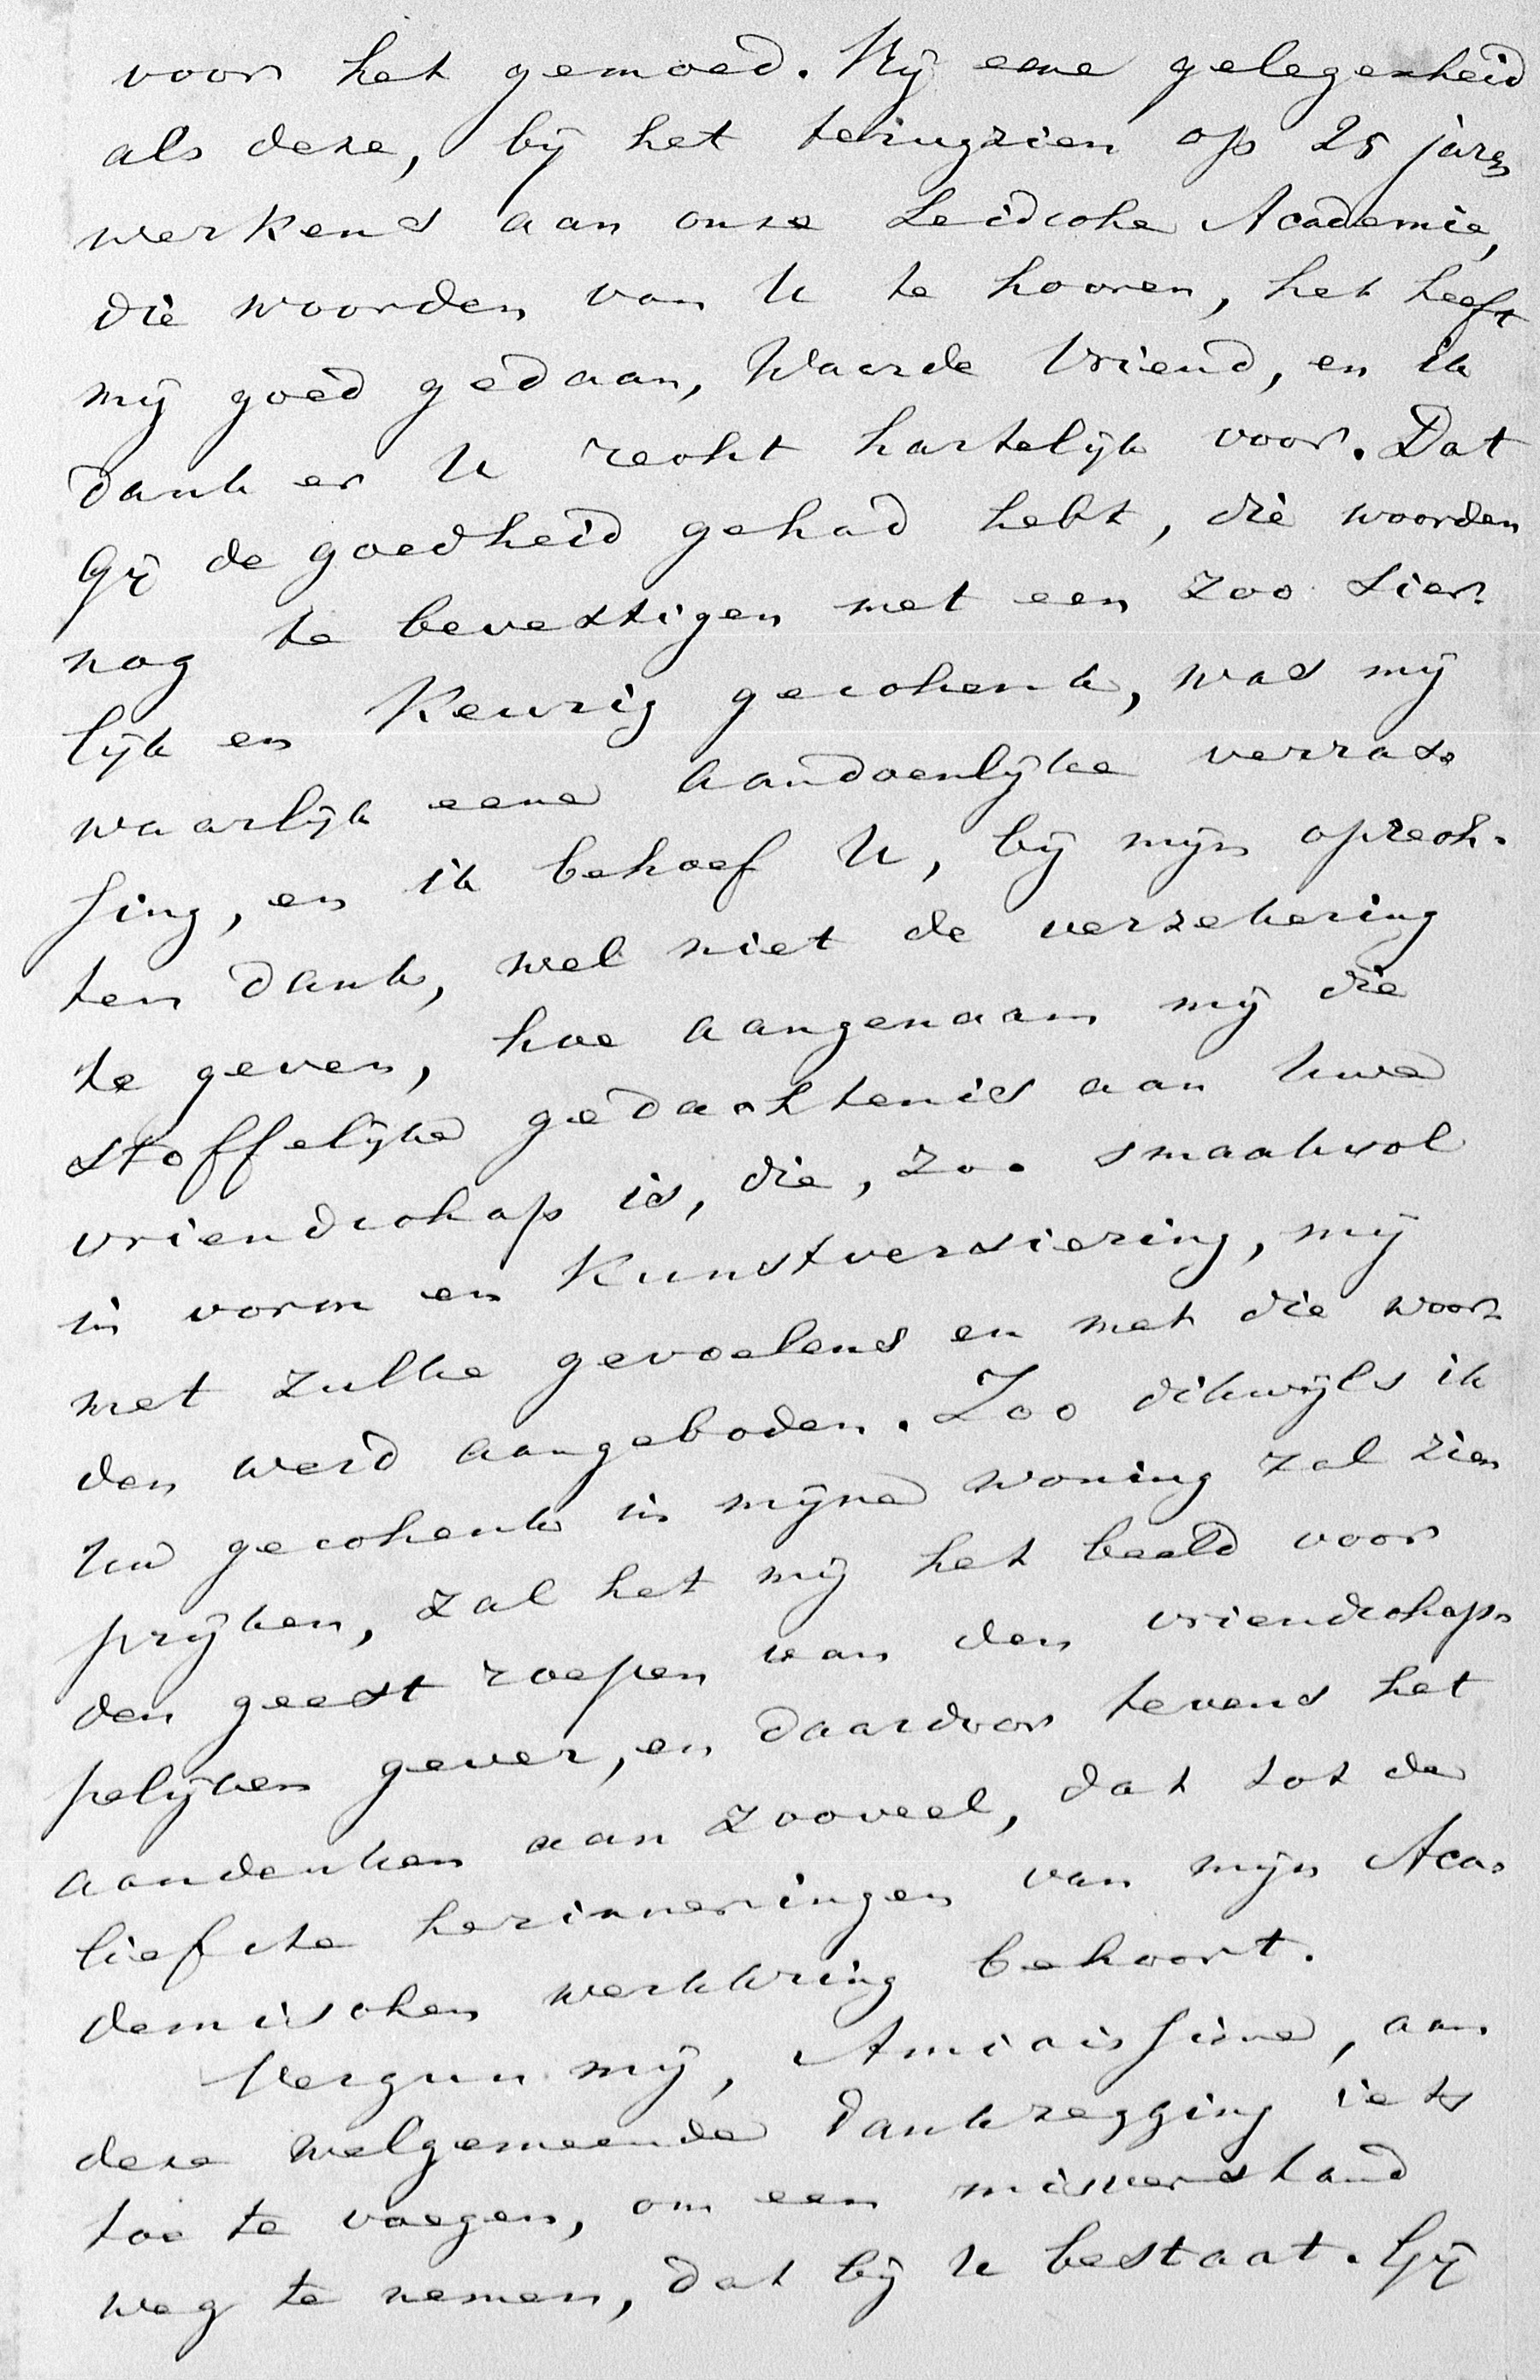 voor het gemoed. Bij eene gelegenheid
als deze, bij het terugzien op 25 jaren
werkens aan onze Leidsche Academie,
die woorden van U te hooren, het heeft
mij goed gedaan, Waarde Vriend, en ik
dank er U recht hartelijk voor. Dat
Gij de goedheid gehad hebt, die woorden
nog te bevestigen met een zoo sier-
lijk en keurig geschenk, was mij
waarlijk eene aandoenlijke verras-
sing, en ik behoef U, bij mijn oprech-
ten dank, wel niet de verzekering
te geven, hoe aangenaam mij die
stoffelijke gedachtenis aan Uwe
vriendschap is, die, zoo smaakvol
in vorm en kunstversiering, mij
met zulke gevoelens en met die woor-
den werd aangeboden. Zoo dikwijls ik
Uw geschenk in mijne woning zal zien
prijken, zal het mij het beeld voor
den geest roepen van den vriendschap-
pelijken gever, en daardoor tevens het
aandenken aan zooveel, dat tot de
liefste herinneringen van mijn Aca-
demischen werkkring behoort.
Vergun mij, Amicissime, aan
deze welgemeende dankzegging iets
toe te voegen, om een misverstand
weg te nemen, dat bij U bestaat. Gij